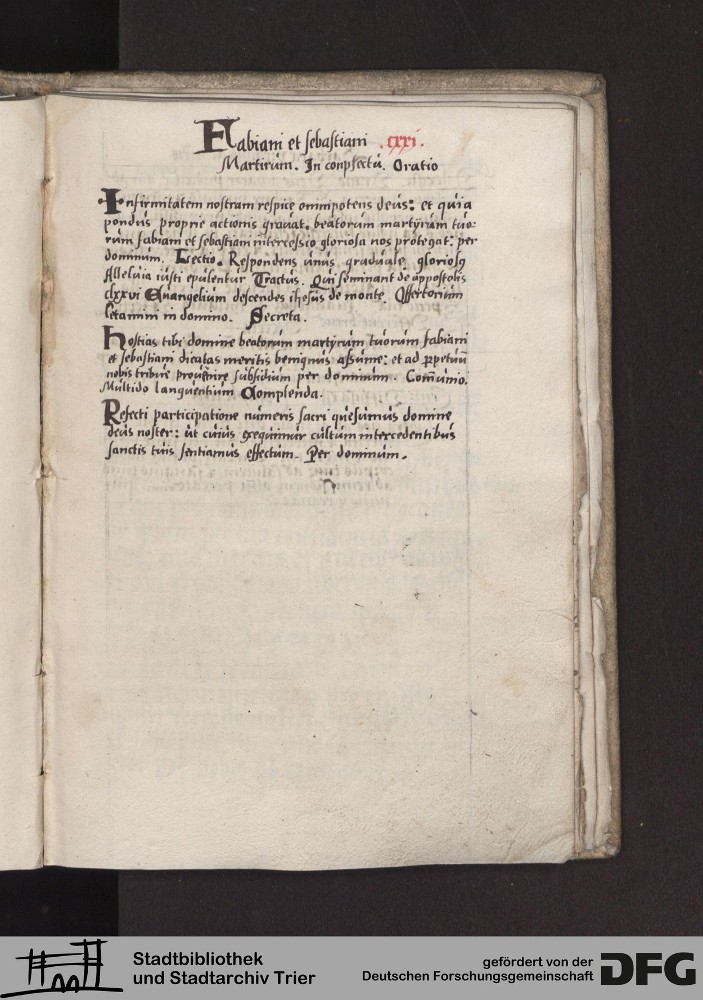 Fabiani et sebastiani .cxxi.
Martirum. In conpsectu. Oratio
Infirmitatem nostram respice omnipotens deus: et quia
pondus proprie actionis gravat. beatorum martyrum tuo-
rum fabiani et sebastiani intercessio gloriosa nos protegat: per
dominum. Lectio. Respondens unus graduale gloriosus
Alleluia iusti epulentur Tractus. Qui seminant de appostolis
clxxvi Evangelium descendes ihesus de monte Offertorium
letamini in domino. Secreta.
Hostias tibi domine beatorum martyrum tuorum fabiani
et sebastiani dicatas meritis benignus assume: et ad ꝑpetuū
nobis tribue provenire subsidium per dominum. Com̄unio.
Multido languentium Complenda.
Refecti participatione numeris sacri quesumus domine
deus noster: ut cuius exequimur cultum intercedentibus
sanctis tuis sentiamus effectum. Per dominum.
Stadtbibliothek
und Stadtarchiv Trier
gefördert von der
Deutschen Forschungsgemeinschaft
DFG